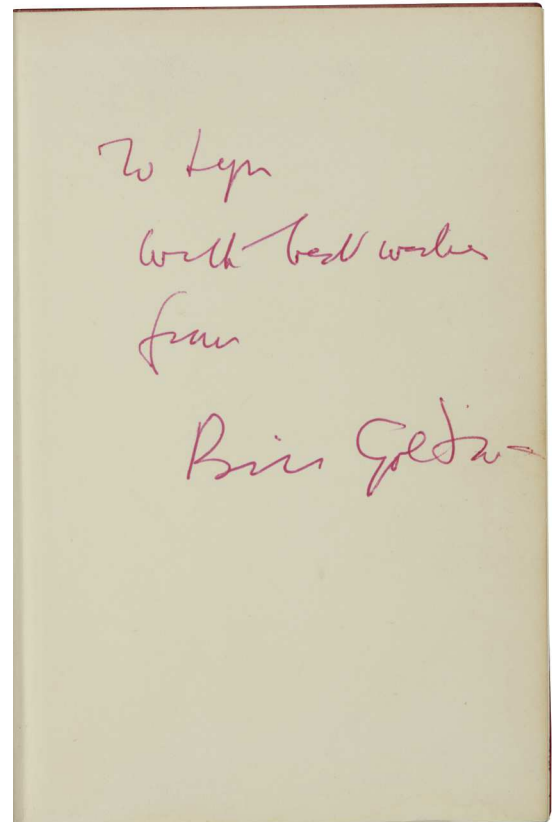 To Lyn
with best wishes
from
Bill Goldman